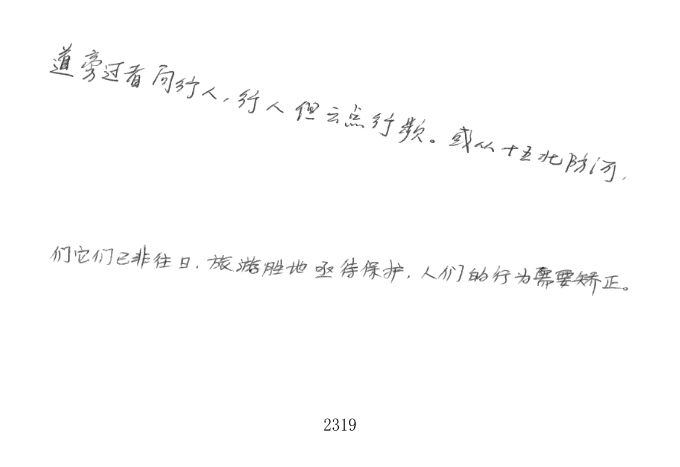 道旁过者问行人,行人但云点行频。或从十五北防河,
们它们已非往日,旅游胜地亟待保护,人们的行为需要矫正。
2319